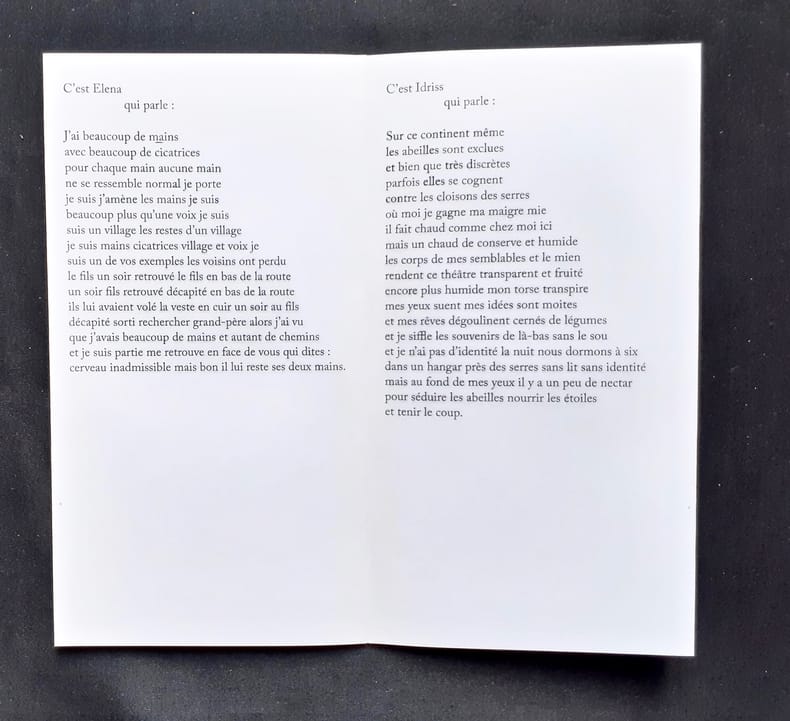 C'est Elena
qui parle :
J'ai beaucoup de mains
avec beaucoup de cicatrices
pour chaque main aucune main
ne se ressemble normal je porte
je suis j'amène les mains je suis
beaucoup plus qu'une voix je suis
suis un village les restes d'un village
je suis mains cicatrices village et voix je
suis un de vos exemples les voisins ont perdu
le fils un soir retrouvé le fils en bas de la route
un soir fils retrouvé décapité en bas de la route
ils lui avaient volé la veste en cuir un soir au fils
décapité sorti rechercher grand-père alors j'ai vu
que j'avais beaucoup de mains et autant de chemins
et je suis partie me retrouve en face de vous qui dites :
cerveau inadmissible mais bon il lui reste ses deux mains.
C'est Idriss
qui parle :
Sur ce continent même
les abeilles sont exclues
et bien que très discrètes
parfois elles se cognent
contre les cloisons des serres
où moi je gagne ma maigre mie
il fait chaud comme chez moi ici
mais un chaud de conserve et humide
les corps de mes semblables et le mien
rendent ce théâtre transparent et fruité
encore plus humide mon torse transpire
mes yeux suent mes idées sont moites
et mes rêves dégoulinent cernés de légumes
et je siffle les souvenirs de là-bas sans le sou
et je n'ai pas d'identité la nuit nous dormons à six
dans un hangar près des serres sans lit sans identité
mais au fond de mes yeux il y a un peu de nectar
pour séduire les abeilles nourrir les étoiles
et tenir le coup.